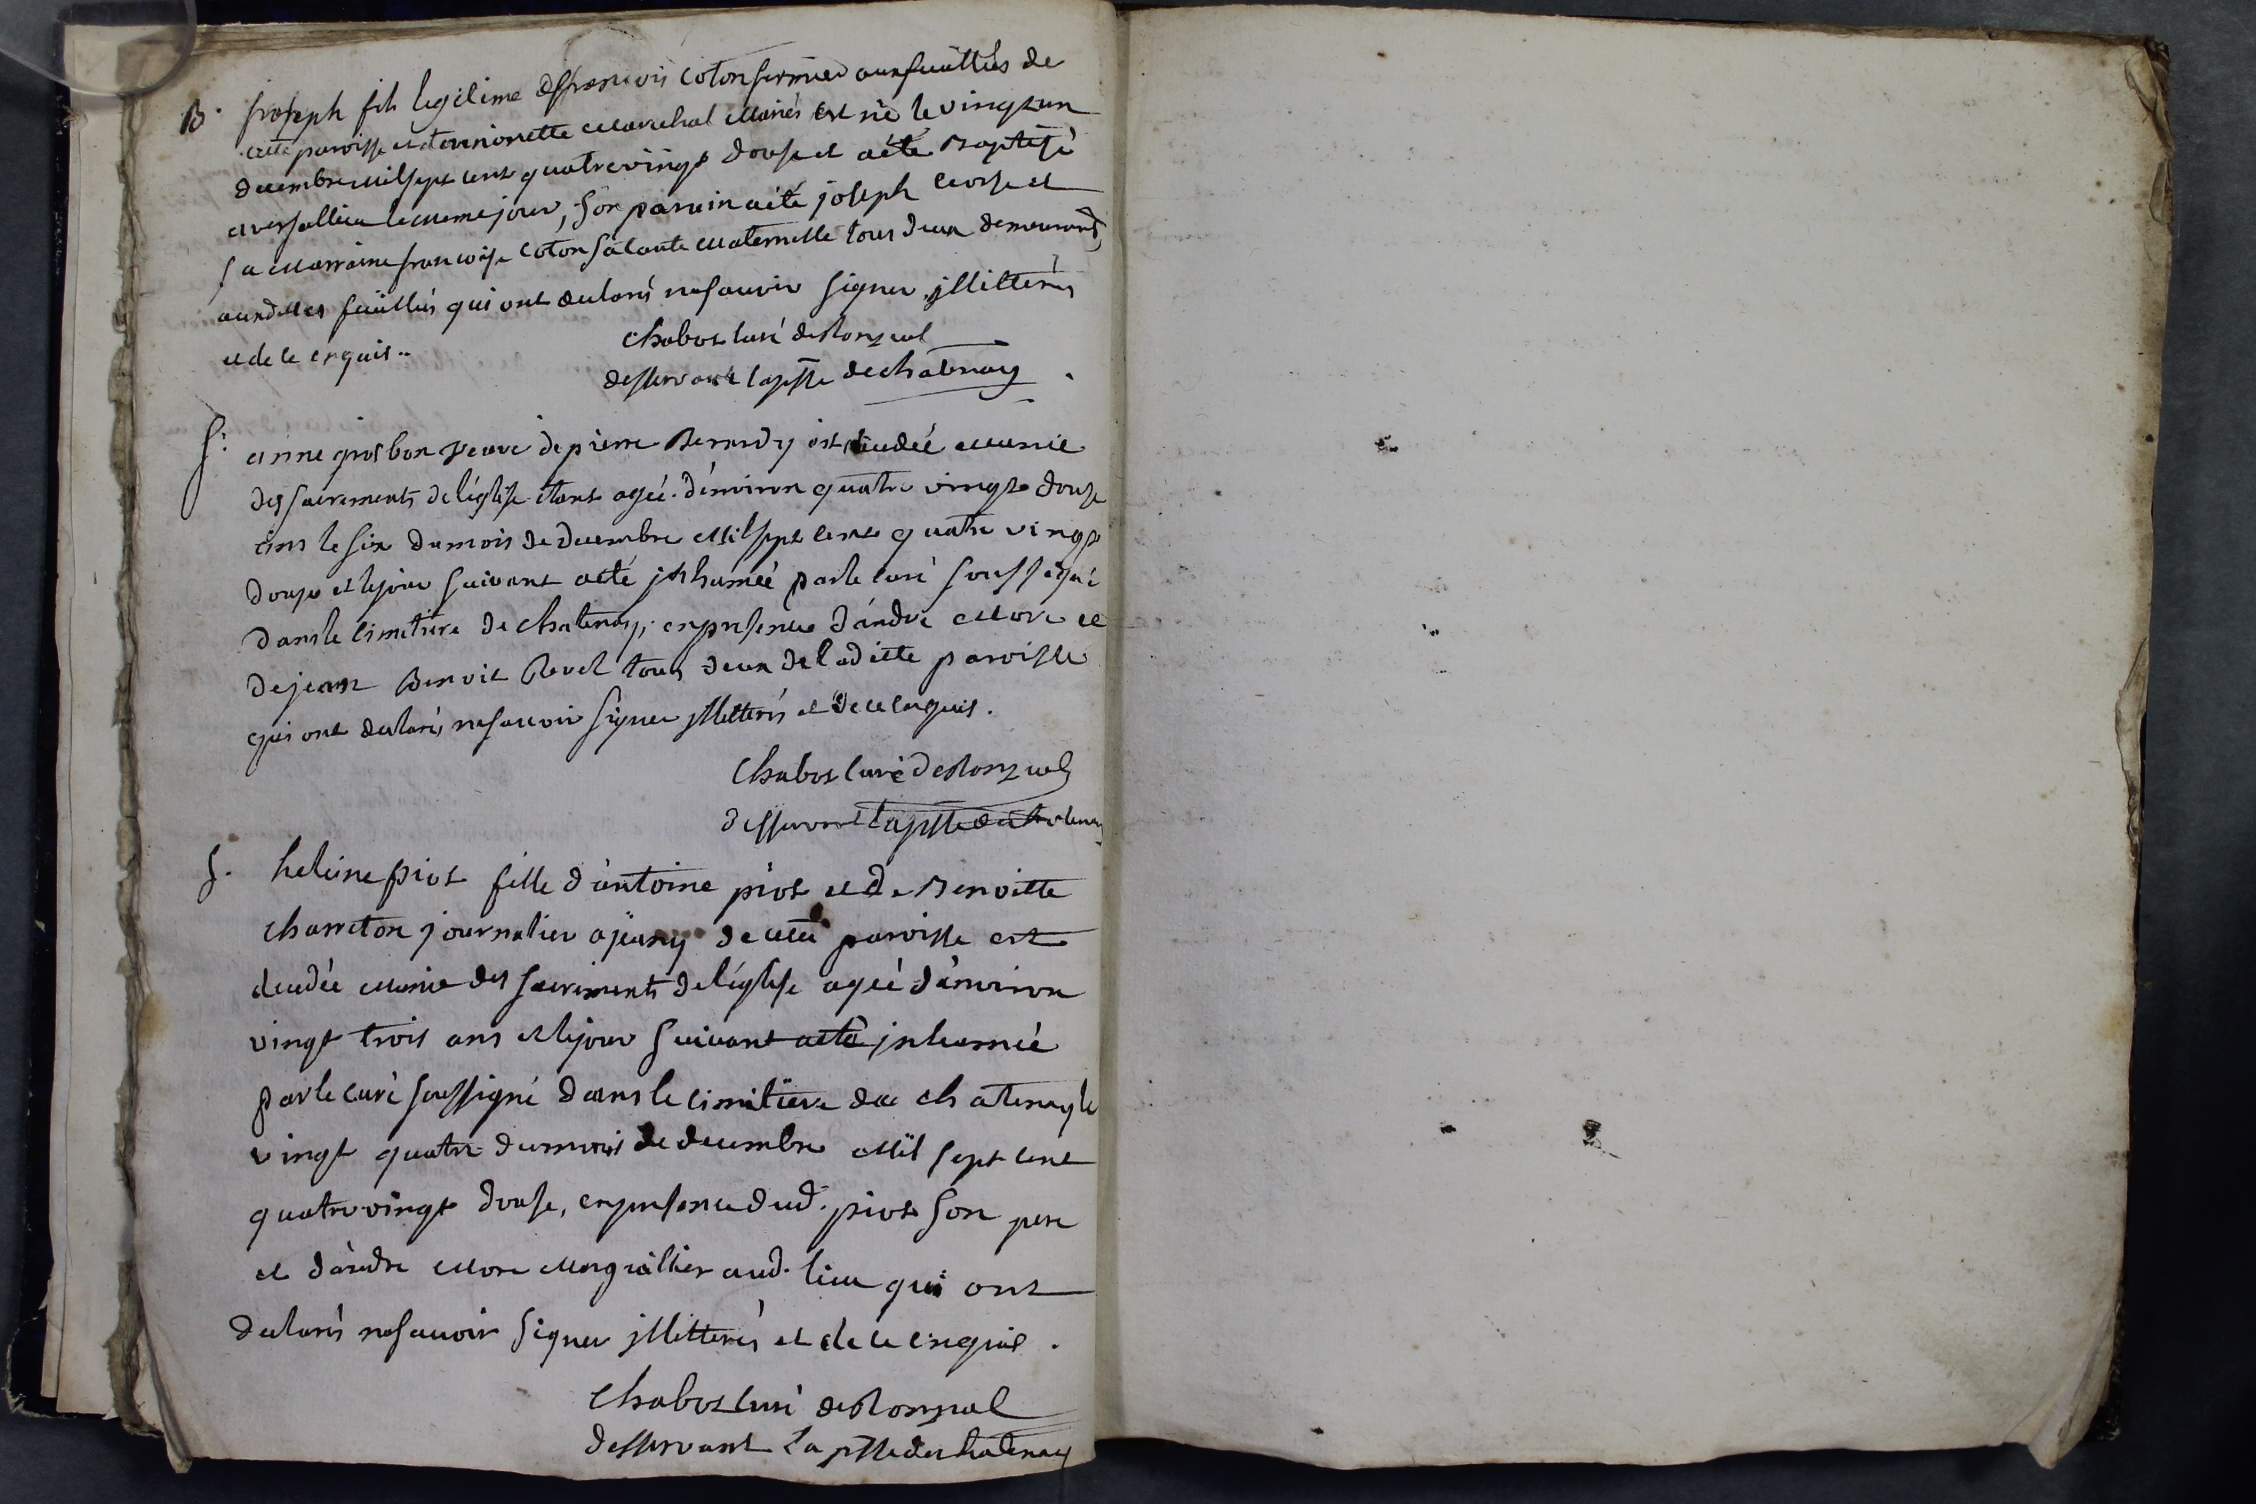 B. joseph fils legitime de francois coton fermier aux feüittes de
cette paroisse et Marechal Mariés est né le vingt un
decembre Mil sept cent quatre vingt douse et a été Baptisé
a versallieu le meme jour, son parain a été joseph et
sa Marraine francoise coton sa tante Maternelle tous deux demeurants
auxdittes feüittes qui ont declarés ne savoir signer jllitterés
et de ce enquis..
Chabot curé de
desservant la psse de chatenay.
S. anne grosbon veuve de pierre Bernardy est decedée Munie
des sacrements de l'église etant agée d'environ quatre vingt douse
ans le six du mois de decembre Mil sept cent quatre vingt
douse et le jour suivant a eté jnhumée par le curé soussigné
dans le cimetiere de chatenay, en presence d'andré More et
de jean Benoit Revel tous deux de laditte paroisse
qui ont declarés ne savoir signer jllitterés et de ce enquis.
Chabot curé de
desservant la psse de chatenay
S. heleine piot fille d'antoine piot et de Benoitte
charreton journalier a jeany de cette paroisse est
decedée Munie des sacrements de l'église agée d'environ
vingt trois ans et le jour suivant a eté jnhumée
par le curé soussigné dans le cimetiere de chatenay le
vingt quatre du mois de decembre Mil sept cent
quatre vingt douse, en presence dud. piot son pere
et d'andré More Marguillier aud. lieu qui ont
declarés ne savoir signer jllitterés et de ce enquis.
Chabot curé de
desservant la psse de chatenay